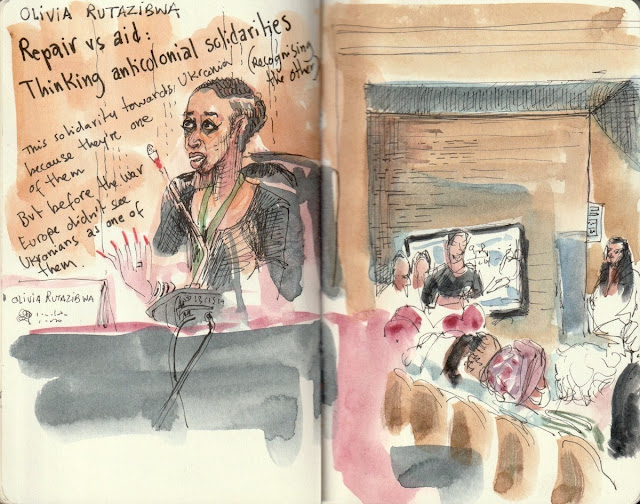 OLIVIA RUTAZIBWA
Repair vs aid:
Thinking anticolonial solidarities
(recognising
the other)
This solidarity towards Ukrainia
because they're one
of them
But before the war
Europe didn't see
Ukranians as one of
them.
OLIVIA RUTAZIBWA